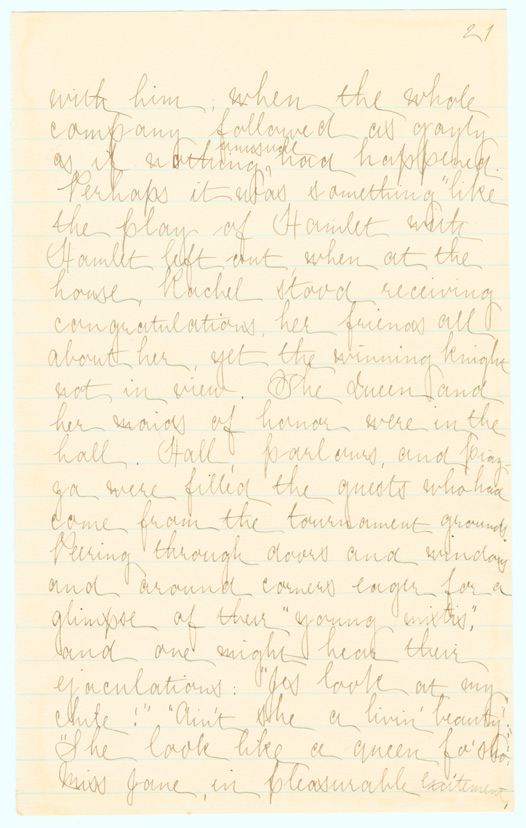 21
with him; when the whole
company followed as gayly
unusual
as if nothing had happened.
Perhaps it was something like
the play of Hamlet with
Hamlet left out, when at the
house, Rachel stood receiving
congratulations, her friends all
about her, yet the winning knight
not in view. The Queen and
her maids of honor were in the
hall. Hall, parlours, and piaz-
za were filled the guests who had
come from the tournament grounds.
Peering through doors and windows
and around corners eager for a
glimpse of their "young mistis",
and one might hear their
ejaculations: "Jes look at my
chile!" "Ain't she a livin' beauty!"
"She look like a queen fo' sho'."
Miss Jane, in pleasurable excitement,